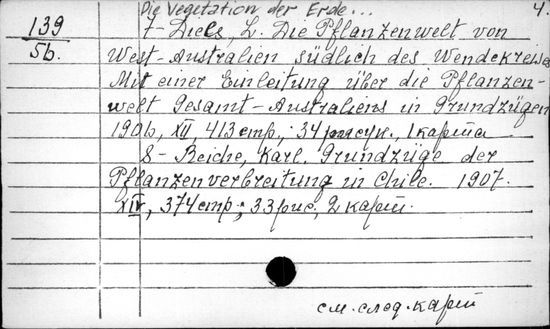 Die Vegetation der Erde... 4.
139 7- Diels, L. Die Pflanzenwelt von
5б. West-Australien südlich des Wendekreises
Mit einer Einleitung über die Pflanzen-
welt Gesamt-Australiens in Grundzügen
1906, XII, 413 стр., 34 рисун., 1 карта
8- Reiche, Karl. Grundzüge der
Pflanzenverbreitung in Chile. 1907.
XIV, 374 стр.; 33 рис., 2 карты.
см. след. карт